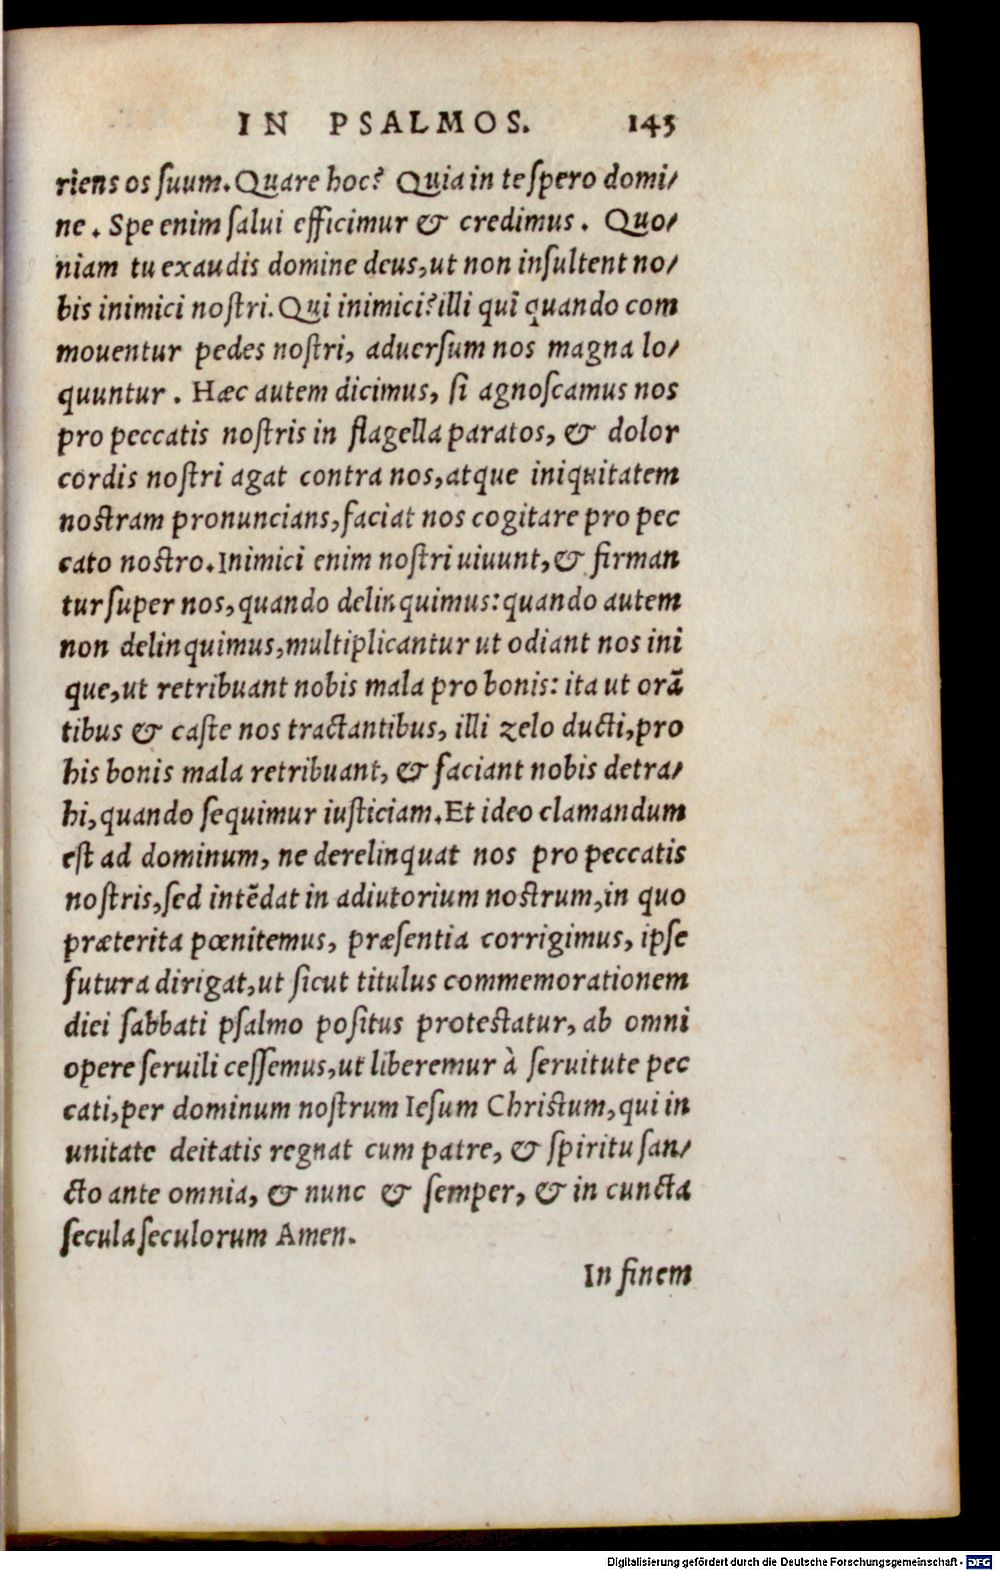 IN PSALMOS. 145
riens os suum. Quare hoc? Quia in te spero domi/
ne. Spe enim salui efficimur & credimus. Quo/
niam tu exaudis domine deus, ut non insultent no/
bis inimici nostri. Qui inimici? illi qui quando com
mouentur pedes nostri, aduersum nos magna lo/
quuntur. Hæc autem dicimus, si agnoscamus nos
pro peccatis nostris in flagella paratos, & dolor
cordis nostri agat contra nos, atque iniquitatem
nostram pronuncians, faciat nos cogitare pro pec
cato nostro. Inimici enim nostri uiuunt, & firman
tur super nos, quando delinquimus: quando autem
non delinquimus, multiplicantur ut odiant nos ini
que, ut retribuant nobis mala pro bonis: ita ut orã
tibus & caste nos tractantibus, illi zelo ducti, pro
his bonis mala retribuant, & faciant nobis detra/
hi, quando sequimur iusticiam. Et ideo clamandum
est ad dominum, ne derelinquat nos pro peccatis
nostris, sed intẽdat in adiutorium nostrum, in quo
præterita pœnitemus, præsentia corrigimus, ipse
futura dirigat, ut sicut titulus commemorationem
diei sabbati psalmo positus protestatur, ab omni
opere seruili cessemus, ut liberemur à seruitute pec
cati, per dominum nostrum Iesum Christum, qui in
unitate deitatis regnat cum patre, & spiritu san/
cto ante omnia, & nunc & semper, & in cuncta
secula seculorum Amen.
In finem
Digitalisierung gefördert durch die Deutsche Forschungsgemeinschaft - DFG